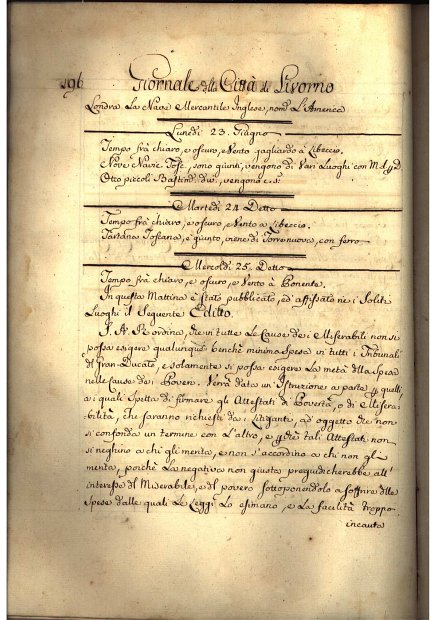 196 Giornale della Città di Livorno
Londra La Nave Mercantile Inglese, nom. L'America
Lunedi 23. Giugno
Tempo frà chiaro, e oscuro, e Vento gagliardo à Libeccio.
Nove Navic. Tosc. sono giunti, vengono di Vari Luoghi con
Otto piccoli Bastim. vengono
Martedi 24 Detto
Tempo frà chiaro, e oscuro, e Vento a Libeccio.
Tartana Toscana, è giunto, viene di Torrenuova, con ferro
Mercoldi 25. Detto
Tempo frà chiaro, e oscuro, e Vento à Ponente.
In questa Mattina è stato pubblicato, ed affissato ne i Soliti
Luoghi il Seguente Editto.
S. A. R. ordina, che in tutte Le Cause de i Miserabili non si
possa esigere qualunque benchè minima Spesa in tutti i Tribunali
del Gran Ducato, e solamente si possa esigere La metà della Spesa
nelle Cause dei Poveri. Verrà data un' Istruzione a parte quelli,
a i quali Spetta di firmare gli Attestati di Povertà, o di Misera-
bilità, che saranno richiesti da i Litiganti, ad oggetto che non
si confonda un termine con L'altro, e che tali Attestati non
si neghino a chi gli merita, e non s'accordino a chi non gli
merita, poichè La negativa non giusta pregiudicherebbe all'
interesse del Miserabile, e del povero sottoponendolo a soffrire delle
Spese dalle quali Le Leggi Lo esimano, e La facilità troppo
incauta